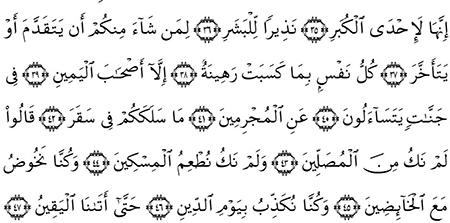 إِنَّهَا لَإِحْدَى ٱلْكُبَرِ ﴿٣٥﴾ نَذِيرًا لِّلْبَشَرِ ﴿٣٦﴾ لِمَن شَآءَ مِنكُمْ أَن يَتَقَدَّمَ أَوْ
يَتَأَخَّرَ ﴿٣٧﴾ كُلُّ نَفْسٍۭ بِمَا كَسَبَتْ رَهِينَةٌ ﴿٣٨﴾ إِلَّآ أَصْحَٰبَ ٱلْيَمِينِ ﴿٣٩﴾ فِى
جَنَّٰتٍ يَتَسَآءَلُونَ ﴿٤٠﴾ عَنِ ٱلْمُجْرِمِينَ ﴿٤١﴾ مَا سَلَكَكُمْ فِى سَقَرَ ﴿٤٢﴾ قَالُوا۟
لَمْ نَكُ مِنَ ٱلْمُصَلِّينَ ﴿٤٣﴾ وَلَمْ نَكُ نُطْعِمُ ٱلْمِسْكِينَ ﴿٤٤﴾ وَكُنَّا نَخُوضُ
مَعَ ٱلْخَآئِضِينَ ﴿٤٥﴾ وَكُنَّا نُكَذِّبُ بِيَوْمِ ٱلدِّينِ ﴿٤٦﴾ حَتَّىٰٓ أَتَىٰنَا ٱلْيَقِينُ ﴿٤٧﴾